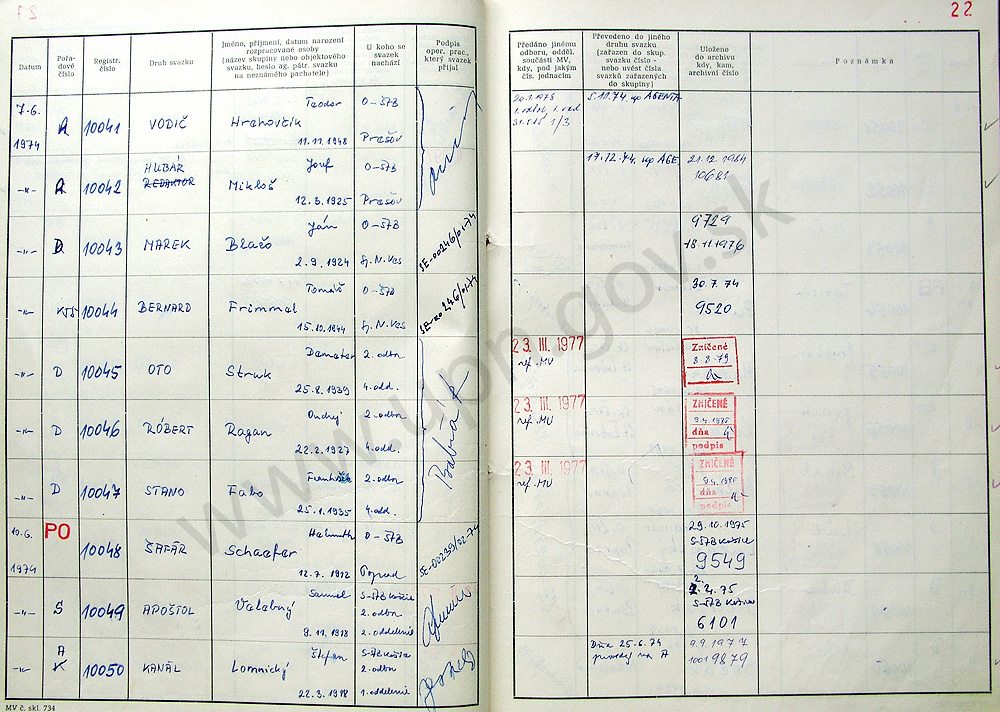 21
22
Datum
Pořadové číslo
Registr. číslo
Druh svazku
Jméno, příjmení, datum narození rozpracované osoby
(název skupiny nebo objektového svazku, heslo ag. pátr. svazku na neznámého pachatele)
U koho se svazek nachází
Podpis oper. prac., který svazek přijal
Předáno jinému odboru, odděl. součásti MV, kdy, pod jakým čís. jednacím
Převedeno do jiného druhu svazku (zařazen do skup. svazku číslo - nebo uvést čísla svazků zařazených do skupiny)
Uloženo do archivu kdy, kam, archivní číslo
Poznámka
7.6. 1974 A 10041 VODIČ Teodor Hrehovčík 11.11.1948 O-ŠTB Prešov
5.11.74 up AGENTA
-"- A 10042 HUBÁR REDAKTOR Jozef Mikloš 12.3.1925 O-ŠTB Prešov
17.12.74 up AGE. 21.12.1984 10681
-"- D 10043 MAREK Ján Blačo 2.9.1924 O-ŠTB Sp.N.Ves SE-00246/01-74
9729 18.11.1976
-"- 10044 BERNARD Tomáš Frimmel 15.10.1944 O-ŠTB Sp.N.Ves SE-00246/01-74
30.7.74 9520
-"- D 10045 OTO Demeter Struk 25.8.1939 2.odbor 4.odd.
23. III. 1977 ref. MV Zničené 8.8.79
-"- D 10046 RÓBERT Ondrej Ragan 22.2.1927 2.odbor 4.odd.
23. III. 1977 ref. MV ZNIČENÉ dňa podpis
-"- D 10047 STANO František Fabo 25.1.1935 2.odbor 4.odd.
23. III. 1977 ref. MV ZNIČENÉ dňa podpis
10.6. 1974 PO 10048 ŠAFÁR Helmuth Schaefer 12.7.1912 O-ŠTB Poprad SE-00239/02-74
29.10.1975 S-ŠTB Košice 9549
-"- S 10049 APOŠTOL Samuel Velebný 9.11.1918 S-ŠTB Košice 2.odbor 2.oddelenie
2.4.75 S-ŠTB Košice 6101
-"- A K 10050 KANÁL Štefan Lomnický 22.3.1918 S-ŠTB Košice 2.odbor 1.oddelenie
Dňa 25.6.74 na A 9.9.1977 9879
MV č. skl. 734
www.upn.gov.sk